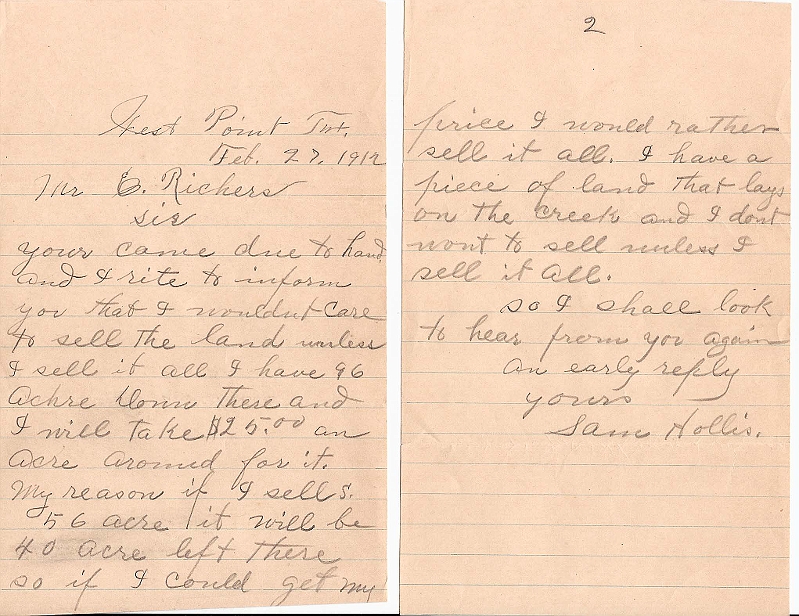 West Point Tex.
Feb. 27. 1912
Mr E. Richers
sir
your came due to hand
and I rite to inform
you that I wouldnt care
to sell the land unless
I sell it all I have 96
achre down there and
I will take $25.00 an
acre around for it.
My reason if I sell
56 acre it will be
40 acre left there
so if I could get my
2
price I would rather
sell it all. I have a
piece of land that lays
on the creek and I dont
wont to sell unless I
sell it all.
so I shall look
to hear from you again
an early reply
yours
Sam Hollis.